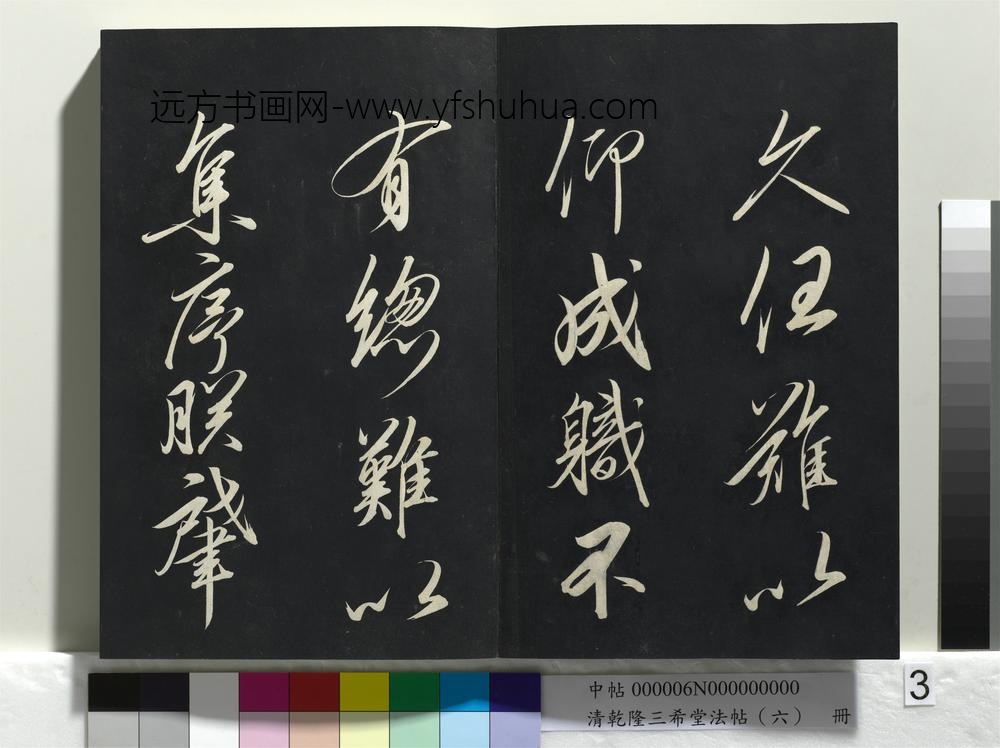 远方书画网-www.yfshuhua.com
久任難以
仰成職不
有總難以
集序朕肇
中帖 000006N000000000
清乾隆三希堂法帖（六） 冊
3